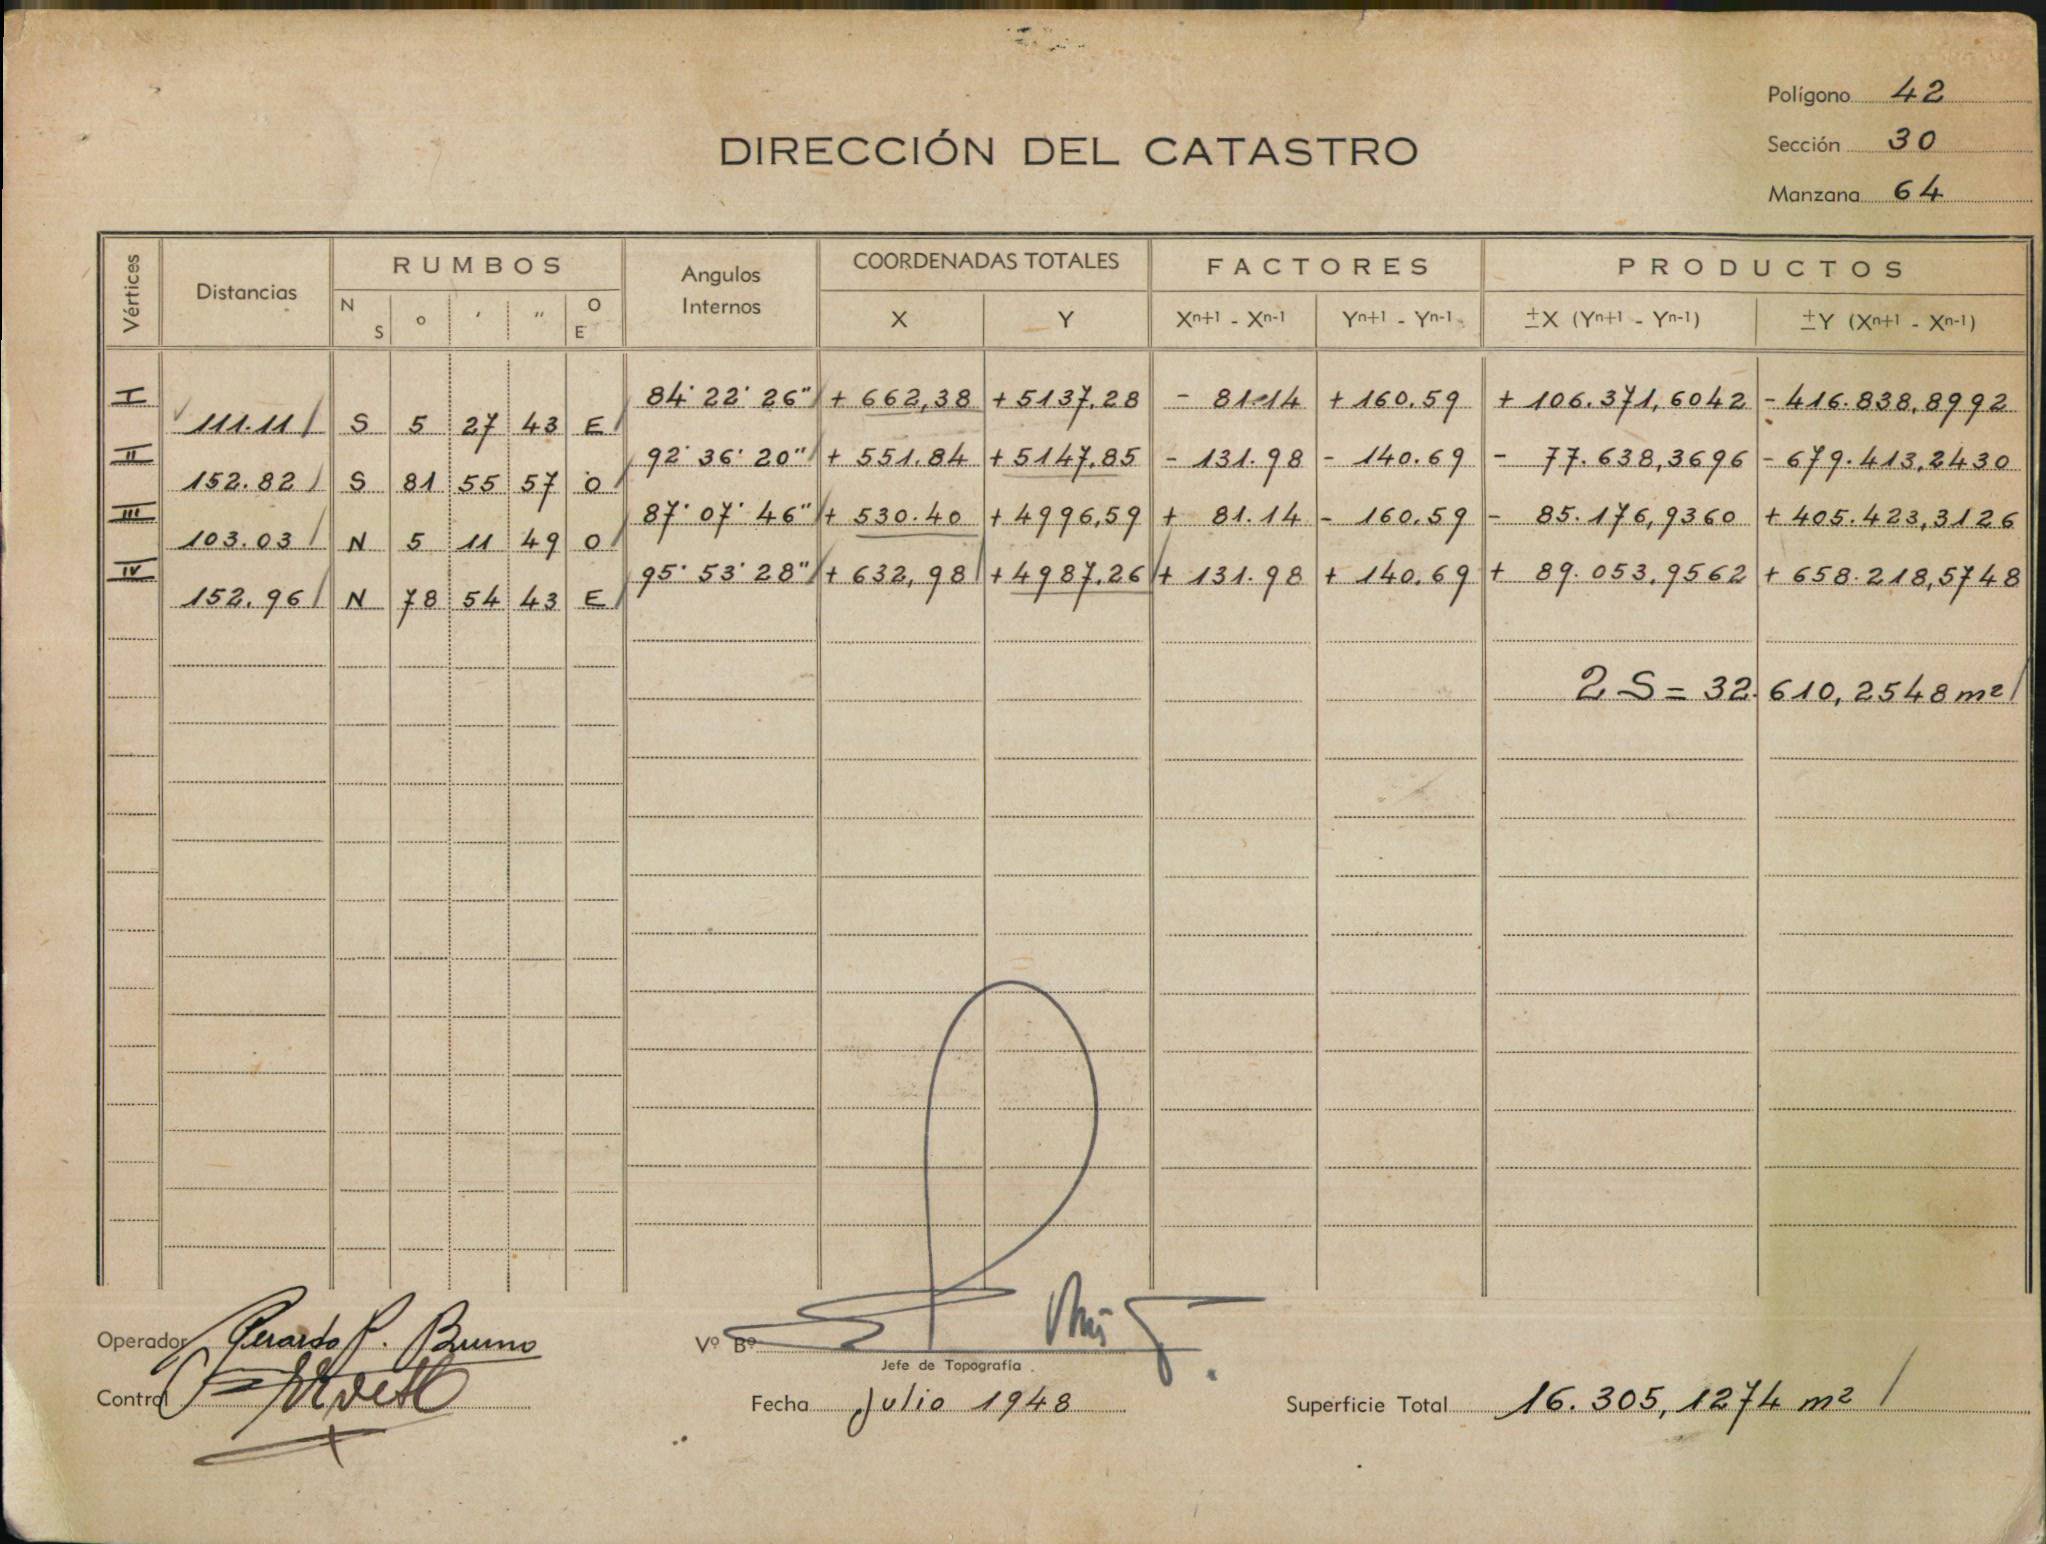 Polígono 42
DIRECCIÓN DEL CATASTRO
Sección 30
Manzana 64
Vértices Distancias RUMBOS Angulos Internos COORDENADAS TOTALES FACTORES PRODUCTOS
N S o ′ ″ O E X Y Xn+1 - Xn-1 Yn+1 - Yn-1 ±X (Yn+1 - Yn-1) ±Y (Xn+1 - Xn-1)
I 84° 22' 26" + 662,38 + 5137,28 - 81.14 + 160.59 + 106.371,6042 - 416.838,8992
111.11 S 5 27 43 E
II 92° 36' 20" + 551.84 + 5147,85 - 131.98 - 140.69 - 77.638,3696 - 679.413,2430
152.82 S 81 55 57 O
III 87° 07' 46" + 530.40 + 4996,59 + 81.14 - 160.59 - 85.176,9360 + 405.423,3126
103.03 N 5 11 49 O
IV 95° 53' 28" + 632,98 + 4987.26 + 131.98 + 140.69 + 89.053,9562 + 658.218,5748
152.96 N 78 54 43 E
2 S = 32.610,2548 m²
Operador Gerardo P. Bruno
Vº Bº
Jefe de Topografía
Control
Fecha Julio 1948
Superficie Total 16.305,1274 m²